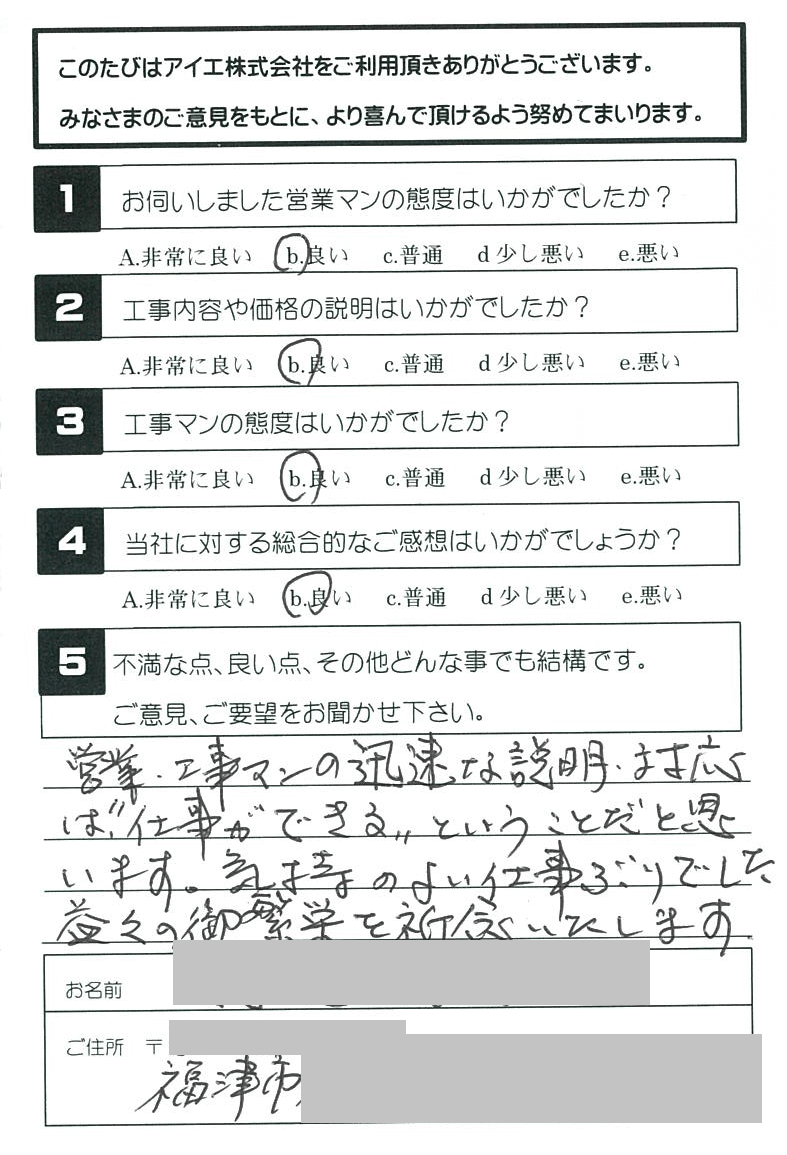 このたびはアイエ株式会社をご利用頂きありがとうございます。
みなさまのご意見をもとに、より喜んで頂けるよう努めてまいります。
1 お伺いしました営業マンの態度はいかがでしたか？
A.非常に良い b.良い c.普通 d 少し悪い e.悪い
2 工事内容や価格の説明はいかがでしたか？
A.非常に良い b.良い c.普通 d 少し悪い e.悪い
3 工事マンの態度はいかがでしたか？
A.非常に良い b.良い c.普通 d 少し悪い e.悪い
4 当社に対する総合的なご感想はいかがでしょうか？
A.非常に良い b.良い c.普通 d 少し悪い e.悪い
5 不満な点、良い点、その他どんな事でも結構です。
ご意見、ご要望をお聞かせ下さい。
営業・工事マンの迅速な説明・対応
は"仕事ができる〃ということだと思
います。気持のよい仕事ぶりでした
益々の御繁栄を祈念いたします
お名前
ご住所 〒
福津市